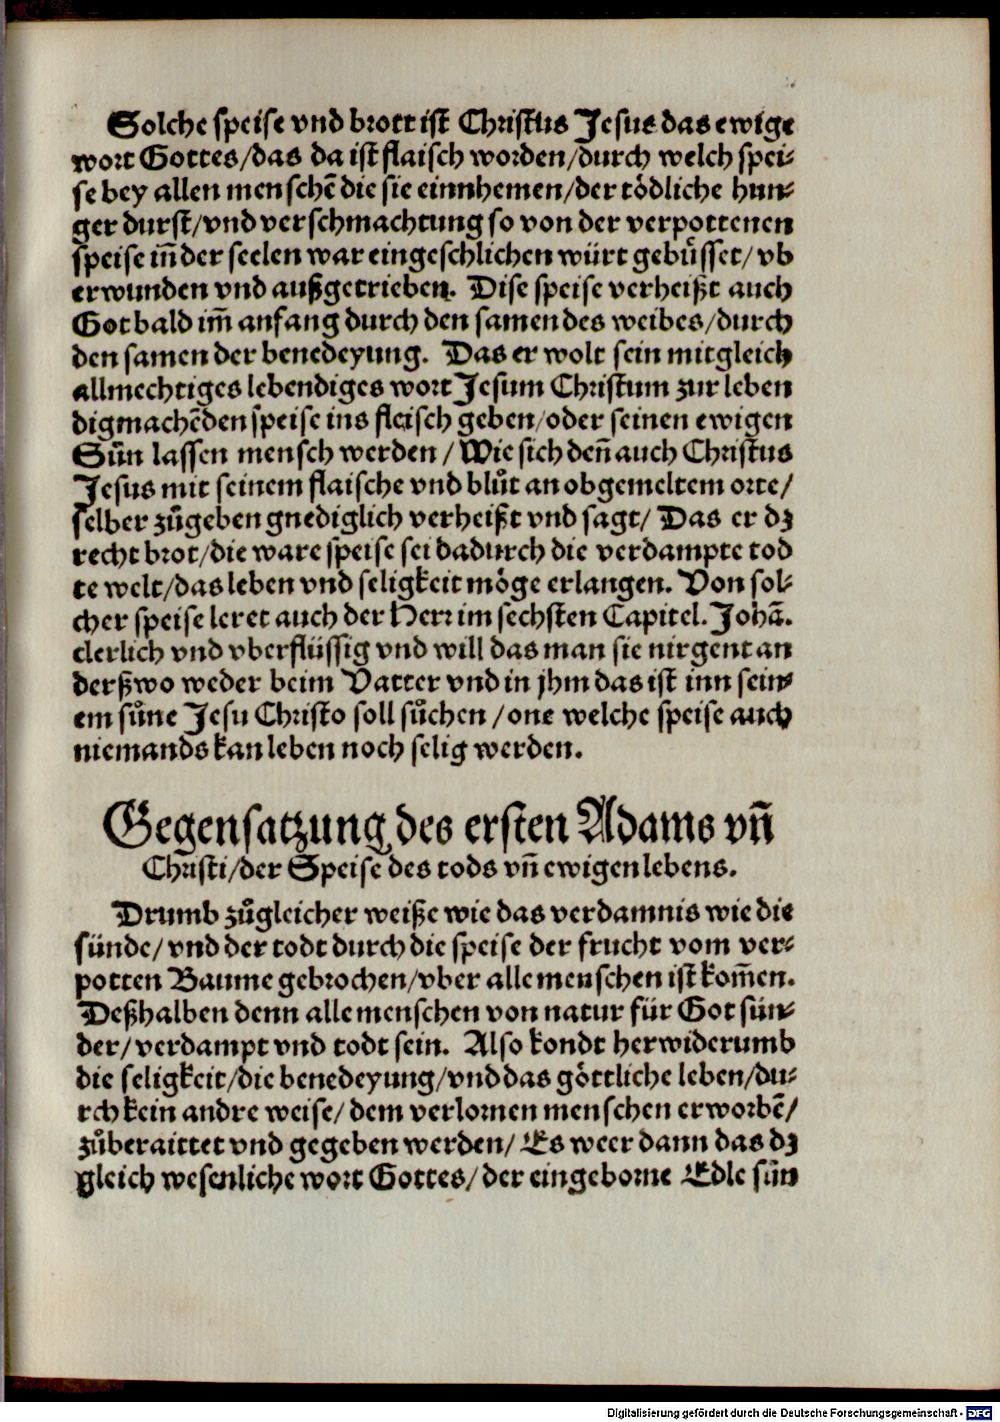 Solche speise vnd brott ist Christus Jesus das ewige
wort Gottes/das da ist flaisch worden/durch welch spei⸗
se bey allen menschē die sie einnhemen/der tödliche hun⸗
ger durst/vnd verschmachtung so von der verpottenen
speise iñ der seelen war eingeschlichen würt gebüsset/vb
erwunden vnd außgetrieben. Dise speise verheißt auch
Got bald im̄ anfang durch den samen des weibes/durch
den samen der benedeyung. Das er wolt sein mitgleich
allmechtiges lebendiges wort Jesum Christum zur leben
digmachēden speise ins fleisch geben/oder seinen ewigen
Sůn lassen mensch werden/Wie sich deñ auch Christus
Jesus mit seinem flaische vnd blůt an obgemeltem orte/
selber zůgeben gnediglich verheißt vnd sagt/ Das er dz
recht brot/die ware speise sei dadurch die verdampte tod
te welt/das leben vnd seligkeit möge erlangen. Von sol⸗
cher speise leret auch der Herr im sechsten Capitel. Johā.
clerlich vnd vberflüssig vnd will das man sie nirgent an
derßwo weder beim Vatter vnd in jhm das ist inn sein⸗
em sůne Jesu Christo soll sůchen/one welche speise auch
niemands kan leben noch selig werden.
Gegensatzung des ersten Adams vñ
Christi/der Speise des tods vñ ewigen lebens.
Drumb zůgleicher weiße wie das verdamnis wie die
sünde/vnd der todt durch die speise der frucht vom ver⸗
potten Baume gebrochen/vber alle menschen ist kom̄en.
Deßhalben denn alle menschen von natur für Got sün⸗
der/verdampt vnd todt sein. Also kondt herwiderumb
die seligkeit/die benedeyung/vnd das göttliche leben/du⸗
rch kein andre weise/dem verlornen menschen erworbē/
zůberaittet vnd gegeben werden/Es weer dann das dz
gleich wesenliche wort Gottes/der eingeborne Edle sůn
Digitalisierung gefördert durch die Deutsche Forschungsgemeinschaft - DFG